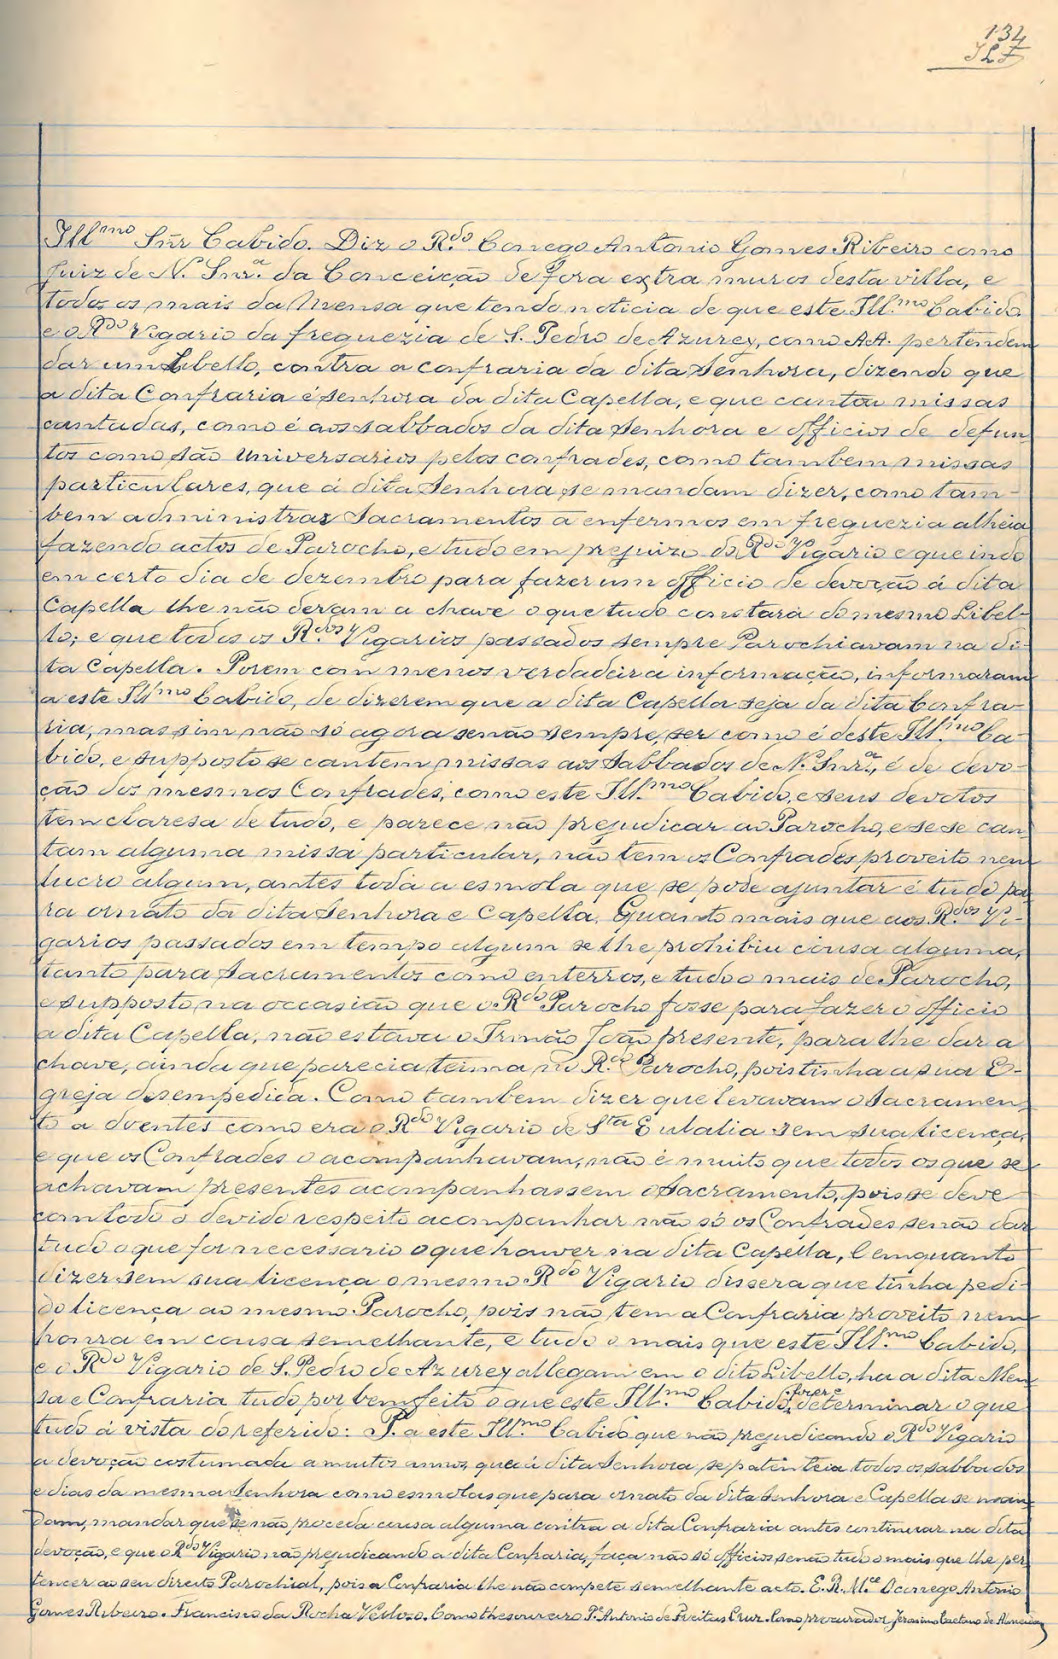 134
Ill.mo Snr Cabido. Diz o R.do Conego Antonio Gomes Ribeiro como
Juiz de N. Snr.a da Conceição de fora extra muros desta villa, e
todos os mais da Mensa que tendo noticia de que este Ill.mo Cabido
e o R.do Vigario da freguezia de S. Pedro de Azurey, como A.A. pertendem
dar um Libello, contra a confraria da dita Senhora, dizendo que
a dita Confraria é senhora da dita Capella, e que cantou missas
cantadas, como é aos sabbados da dita Senhora e officios de defun-
tos como são universarios pelos confrades, como tambem missas
particulares, que á dita Senhora se mandam dizer, como tam-
bem administrar Sacramentos a enfermos em freguezia alheia
fazendo actos de Parocho, e tudo em prejuizo do R.do Vigario e que indo
em certo dia de dezembro para fazer um officio de devoção á dita
Capella lhe não deram a chave o que tudo constará do mesmo Libel-
lo; e que todos os R.dos Vigarios passados sempre Parochiavam na di-
ta Capella. Porem com menos verdadeira informação, informaram
a este Ill.mo Cabido, de dizerem que a dita Capella seja da dita Confra-
ria, mas sim não só agora senão sempre, ser como é deste Ill.mo Ca-
bido, e supposto se cantem missas aos Sabbados de N. Snr.a, é de devo-
ção dos mesmos Confrades, como este Ill.mo Cabido, e seus devotos
tem claresa de tudo, e parece não prejudicar ao Parocho, e se se can-
tam alguma missa particular, não tem os Confrades proveito nem
lucro algum, antes toda a esmola que se pode ajuntar é tudo pa-
ra ornato da dita Senhora e Capella. Quanto mais que aos R.dos Vi-
garios passados em tempo algum se lhe prohibiu cousa alguma,
tanto para Sacramentos como enterros, e tudo o mais de Parocho,
e supposto, na occasião que o R.do Parocho fosse para fazer o officio
a dita Capella, não estava o Irmão João presente, para lhe dar a
chave, ainda que parecia teima no R.do Parocho, pois tinha a sua E-
greja desempedica. Como tambem dizer que levavam o Sacramen-
to a doentes como era o R.do Vigario de S.ta Eulalia sem sua licença,
e que os Confrades o acompanhavam, não é muito que todos os que se
achavam presentes acompanhassem o Sacramento, pois se deve
com todo o devido respeito acompanhar não só os Confrades senão dar
tudo o que for necessario o que houver na dita Capella, E emquanto
dizer sem sua licença o mesmo R.do Vigario dissera que tinha pedi-
do licença ao mesmo Parocho, pois não tem a Confraria proveito nem
honra em cousa semelhante, e tudo o mais que este Ill.mo Cabido,
e o R.do Vigario de S. Pedro de Azurey allegam em o dito Libello, ha a dita Men-
sa e Confraria tudo por bem feito o que este Ill.mo Cabido fizer e determinar o que
tudo á vista do referido: P. a este Ill.mo Cabido que não prejudicando o R.do Vigario
a devoção costumada a muitos annos, que á dita Senhora, se patinteia todos os sabbados
e dias da mesma Senhora como esmolas que para ornato da dita Senhora e Capella se man-
dam, mandar que se não proceda cousa alguma contra a dita Confraria antes continuar na dita
devoção, e que o R.do Vigario não prejudicando a dita Confraria, faça não só officios senão tudo o mais que lhe per-
tencer ao seu direito Parochial, pois a Confraria lhe não compete semelhante acto. E. R. M.ce O conego Antonio
Gomes Ribeiro. Francisco da Rocha Velloso. Como thesoureiro P.e Antonio de Freitas Cruz. Como procurador Jeronimo Caetano de Almeida